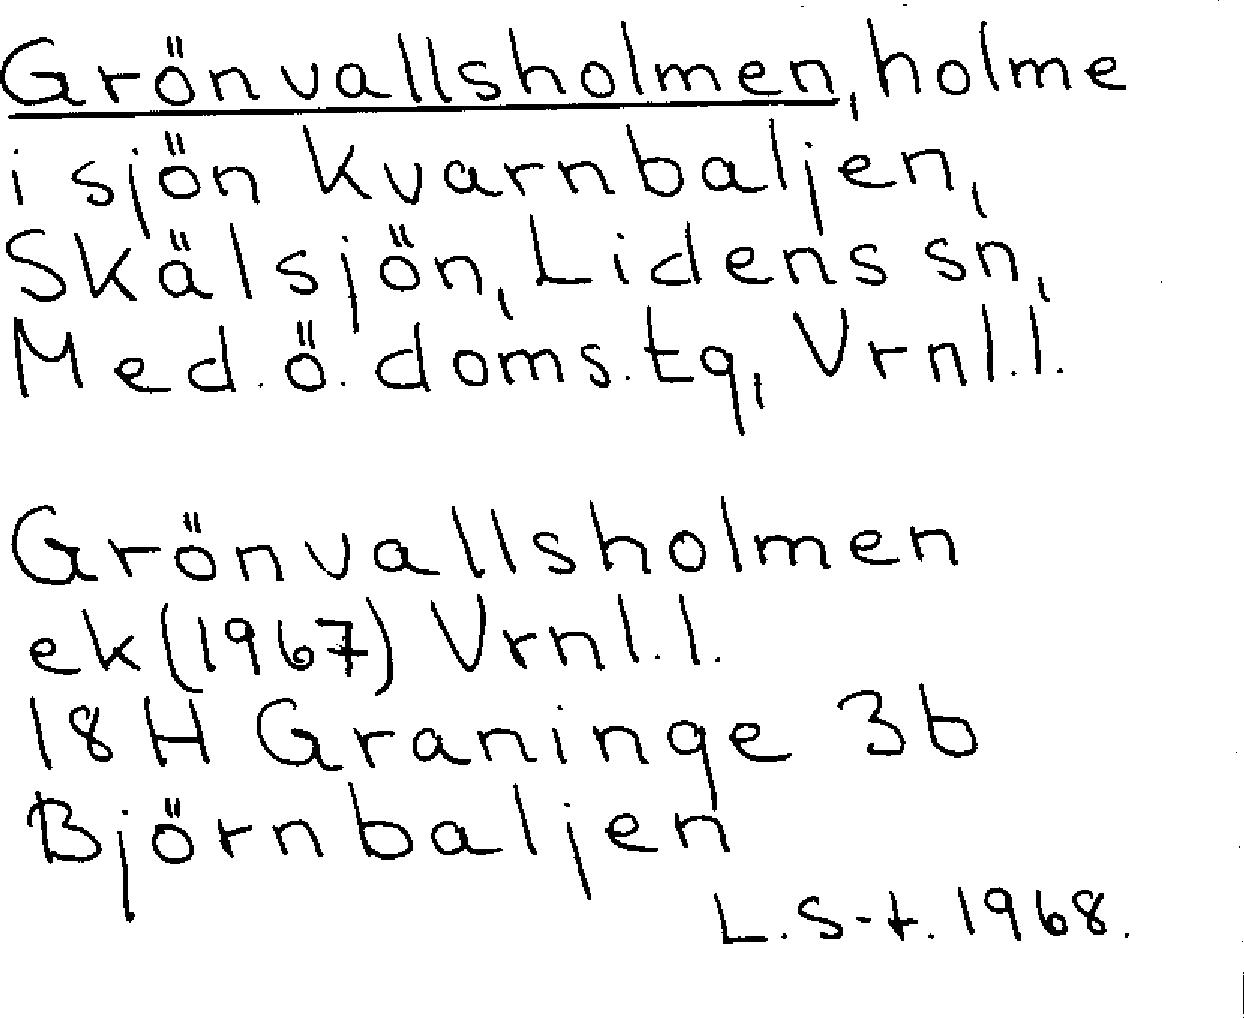 Grönvallsholmen, holme
i sjön Kvarnbaljen,
Skälsjön, Lidens sn,
Med.ö.doms.tg, Vrnl.l.
Grönvallsholmen
ek(1967) Vrnl.l.
18H Graninge 3b
Björnbaljen
L.S-t. 1968.